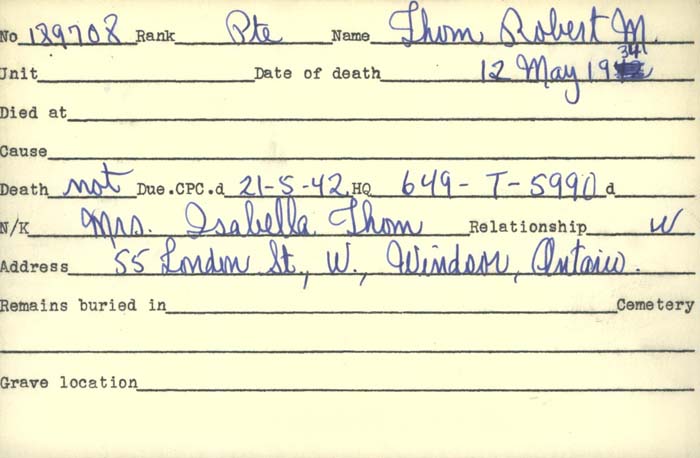 No 189708 Rank Pte Name Thom Robert M.
Unit Date of death 12 May 1934
Died at
Cause
Death not Due.CPC.d 21-5-42.HQ 649-T-5990 d
N/K Mrs. Isabella Thom Relationship W
Address 55 London St., W., Windsor, Ontario.
Remains buried in Cemetery
Grave location